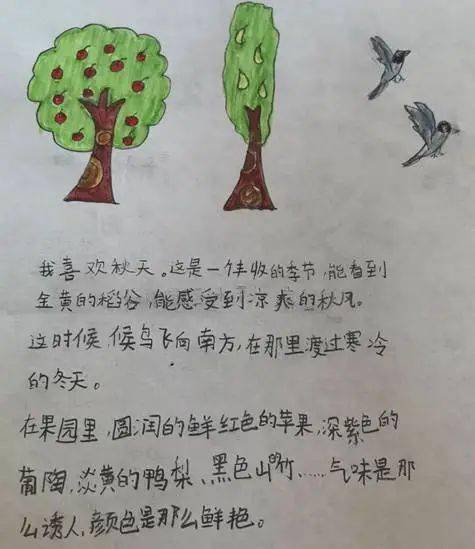 我喜欢秋天。这是一个丰收的季节,能看到
金黄的稻谷,能感受到凉爽的秋风。
这时候,候鸟飞向南方,在那里渡过寒冷
的冬天。
在果园里,圆润的鲜红色的苹果,深紫色的
葡陶,淡黄的鸭梨、黑色山竹……气味是那
么诱人,颜色是那么鲜艳。